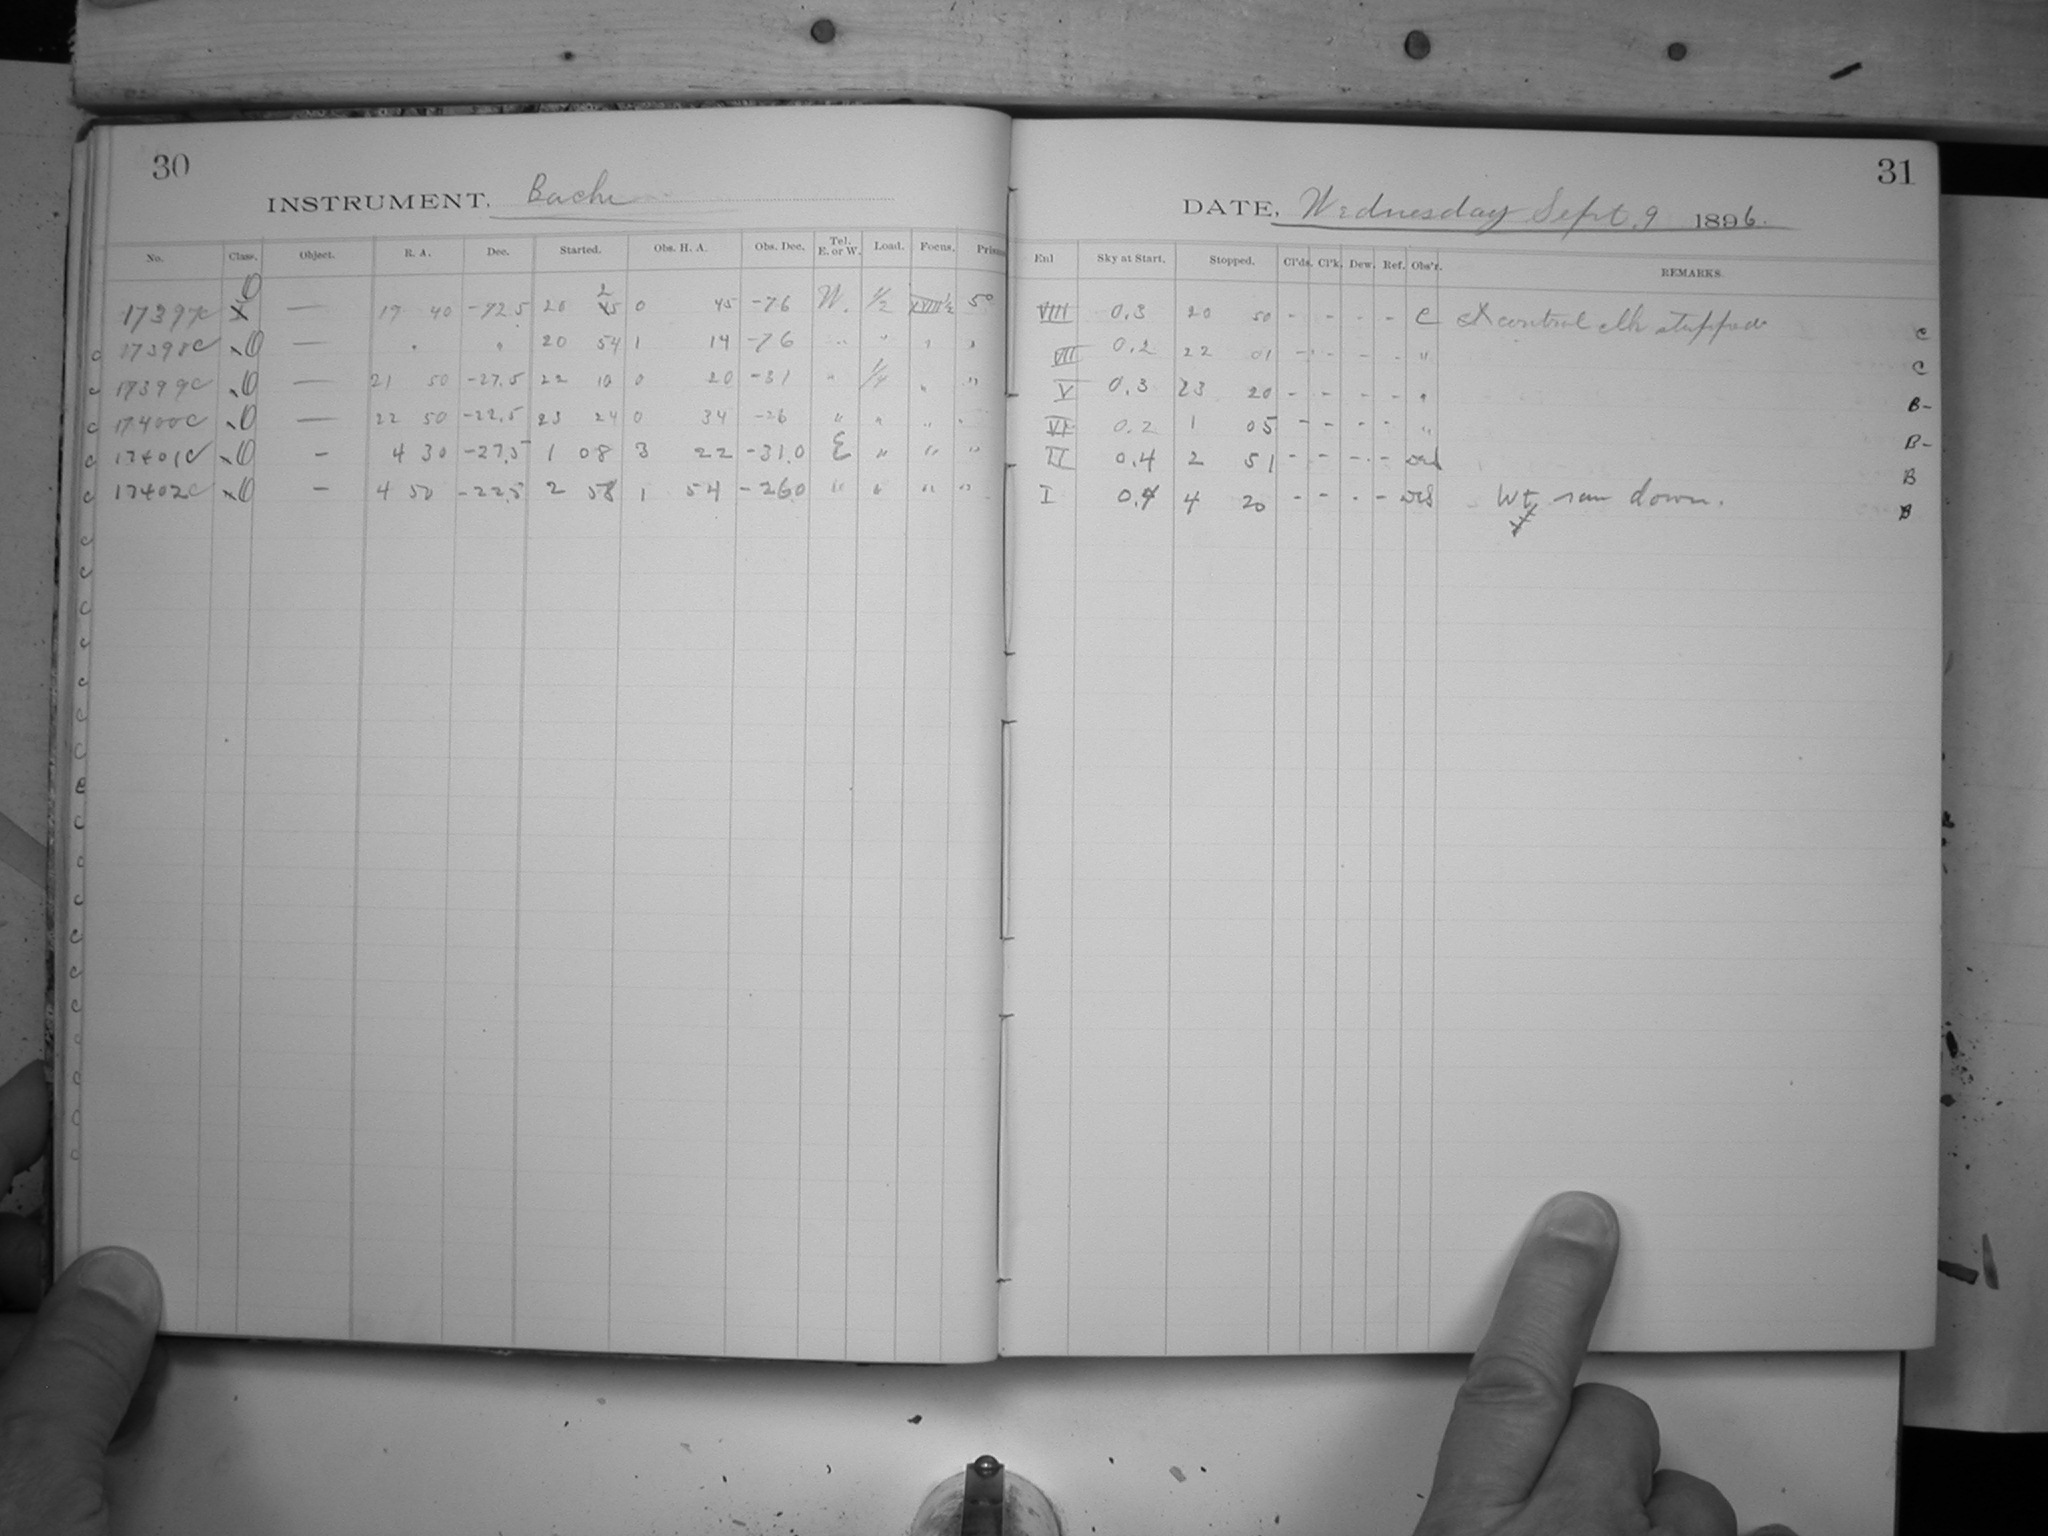 30
INSTRUMENT. Bache
No. Class. Object. R. A. Dec. Started. Obs. H. A. Obs. Dec. Tel. E. or W. Load. Focus. Prism
17397c XO — 19 40 -72.5 20 25 0 45 -76 W. 1/2 XVIII 1/2 5°
17398C xO — " " 20 54 1 14 -76 " " " "
17399C xO — 21 50 -27.5 22 10 0 20 -31 " 1/4 " "
17400C xO — 22 50 -22.5 23 24 0 34 -26 " " " "
17401C xO — 4 30 -27.5 1 08 3 22 -31.0 E " " "
17402C xO — 4 50 -22.5 2 58 1 54 -26.0 " " " "
31
DATE, Wednesday Sept. 9 1896.
Enl Sky at Start. Stopped. Cl'ds. Cl'k. Dew. Ref. Obs'r. REMARKS.
VIII 0.3 20 50 - - - - C control clk stopped C
VII 0.2 22 01 - - - - " C
V 0.3 23 20 - - - - " B-
VI 0.2 1 05 - - - - " B-
II 0.4 2 51 - - - - B
I 0.4 4 20 - - - - Wt ran down. B